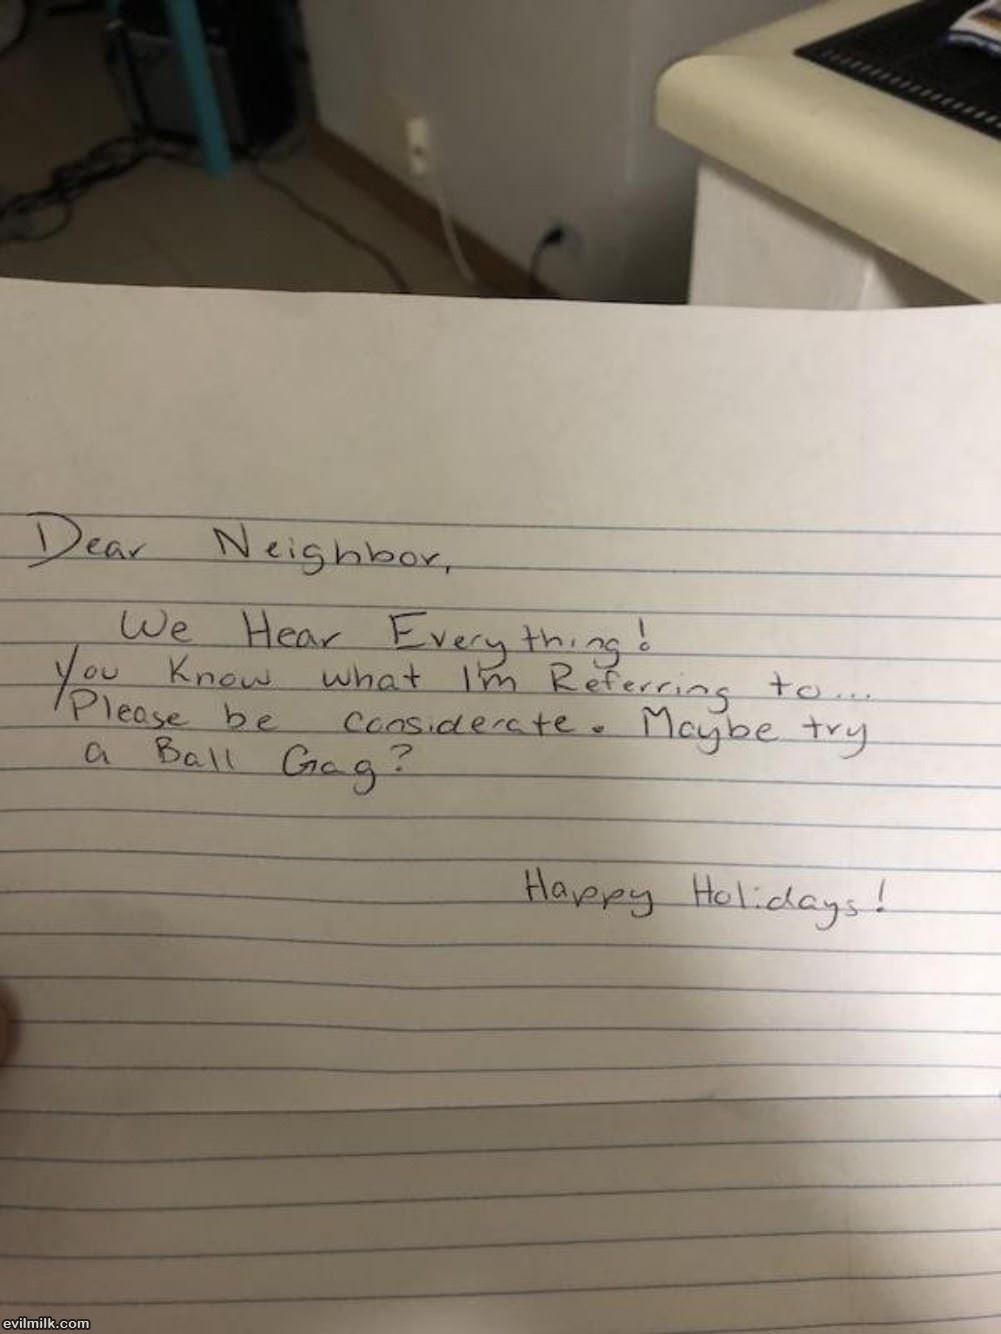 Dear Neighbor,
We Hear Everything!
You Know what I'm Referring to...
Please be considerate. Maybe try
a Ball Gag?
Happy Holidays!
evilmilk.com